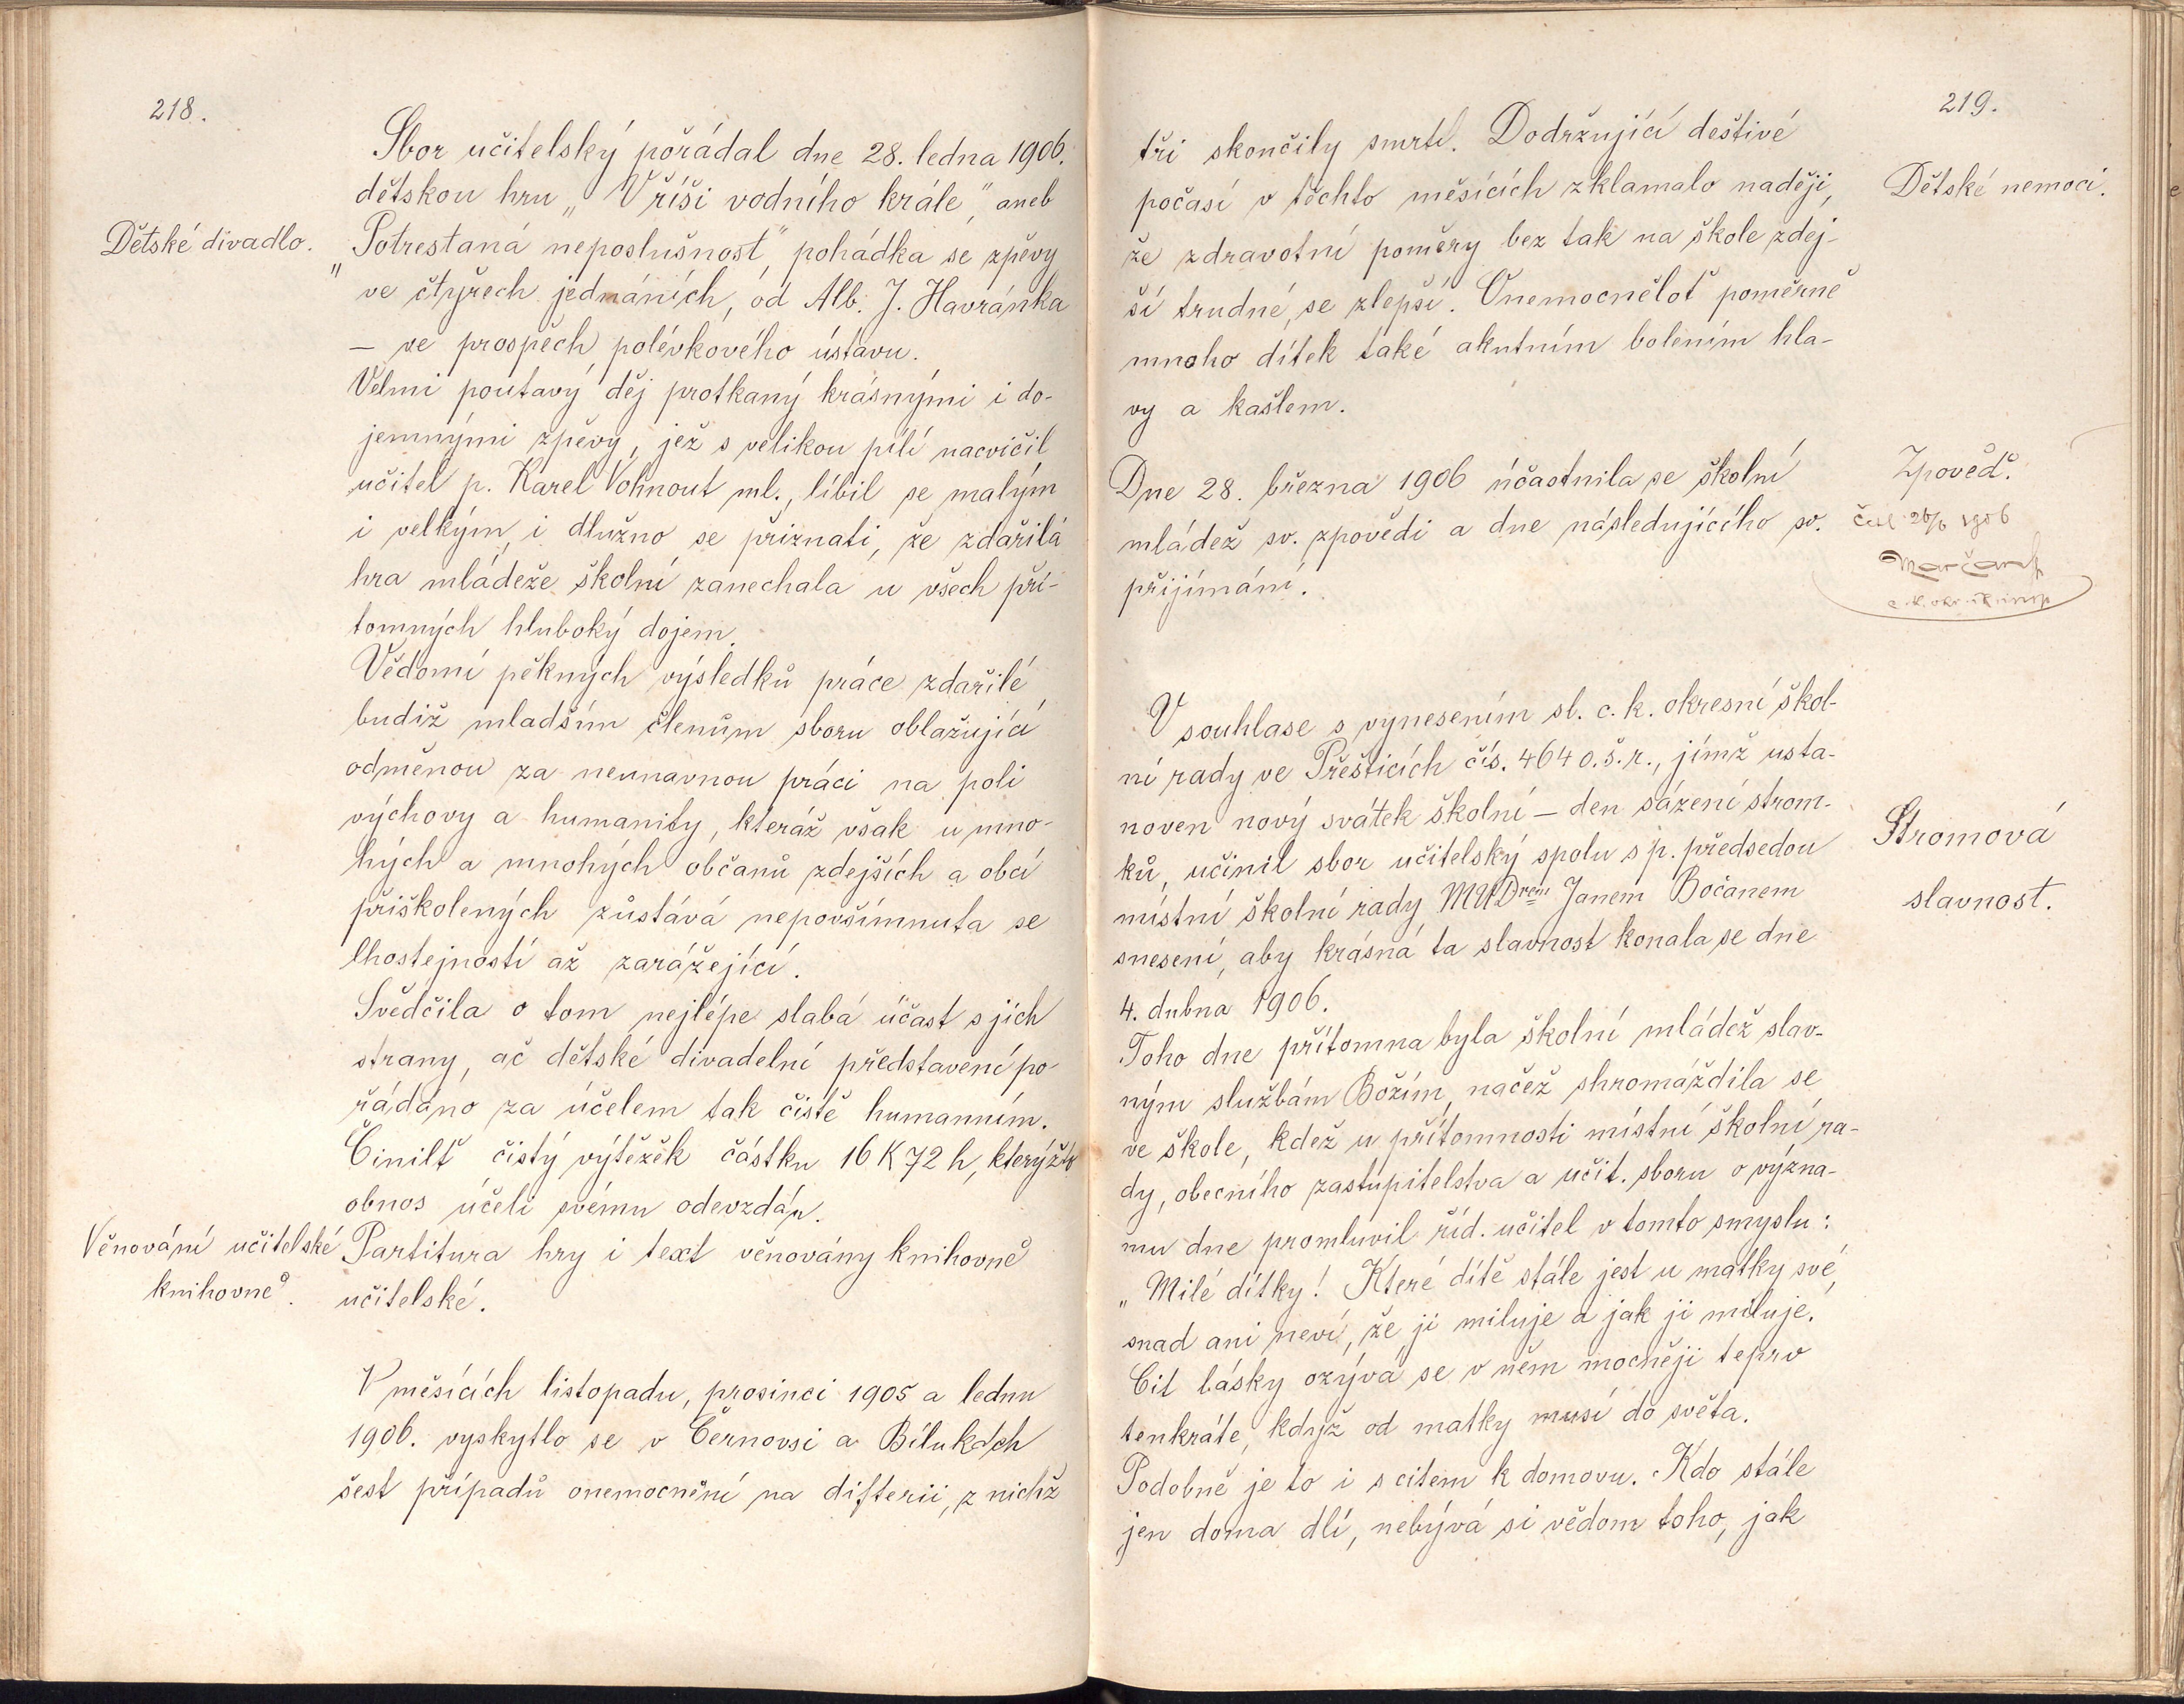 218.
Sbor učitelský pořádal dne 28. ledna 1906.
dětskou hru „V říši vodního krále“, aneb
Dětské divadlo.
„Potrestaná neposlušnost“ pohádka se zpěvy
ve čtyřech jednáních, od Alb. J. Havránka
— ve prospěch polévkového ústavu.
Velmi poutavý děj protkaný krásnými i do-
jemnými zpěvy, jež s velikou pílí nacvičil
učitel p. Karel Vohnout ml., líbil se malým
i velkým, i dlužno se přiznati, že zdařilá
hra mládeže školní zanechala u všech pří-
tomných hluboký dojem.
Vědomí pěkných výsledků práce zdařilé
budiž mladším členům sboru oblažující
odměnou za neunavnou práci na poli
výchovy a humanity, kteráž však u mno-
hých a mnohých občanů zdejších a obcí
přiškolených zůstává nepovšímnuta se
lhostejností až zarážející.
Svědčila o tom nejlépe slabá účast s jich
strany, ač dětské divadelní představení po-
řádáno za účelem tak čistě humanním.
Činilť čistý výtěžek částku 16 K 72 h, kterýžto
obnos účeli svému odevzdán.
Věnování učitelské
knihovně.
Partitura hry i text věnovány knihovně
učitelské.
V měsících listopadu, prosinci 1905 a lednu
1906. vyskytlo se v Černovsi a Bílukách
šest případů onemocnění na difterii, z nichž
219.
tři skončily smrtí. Dodržující deštivé
Dětské nemoci.
počasí v těchto měsících zklamalo naději,
že zdravotní poměry bez tak na škole zdej-
ší trudné, se zlepší. Onemocněloť poměrně
mnoho dítek také akutním bolením hla-
vy a kašlem.
Zpověď.
Dne 28. března 1906 účastnila se školní
mládež sv. zpovědi a dne následujícího sv.
přijímání.
četl 26/6 1906
V souhlase s vynesením sl. c. k. okresní škol-
ní rady ve Přešticích čís. 464 o. š. r., jímž usta-
noven nový svátek školní — den sázení strom-
Stromová
slavnost.
ků, učinil sbor učitelský spolu s p. předsedou
místní školní rady MUDrem Janem Bočanem
snesení, aby krásná ta slavnost konala se dne
4. dubna 1906.
Toho dne přítomna byla školní mládež slav-
ným službám Božím, načež shromáždila se
ve škole, kdež u přítomnosti místní školní ra-
dy, obecního zastupitelstva a učit. sboru o význa-
mu dne promluvil říd. učitel v tomto smyslu:
„Milé dítky! Které dítě stále jest u matky své,
snad ani neví, že ji miluje a jak ji miluje.
Cit lásky ozývá se v něm mocněji teprv
tenkráte, když od matky musí do světa.
Podobně je to i s citem k domovu. Kdo stále
jen doma dlí, nebývá si vědom toho, jak